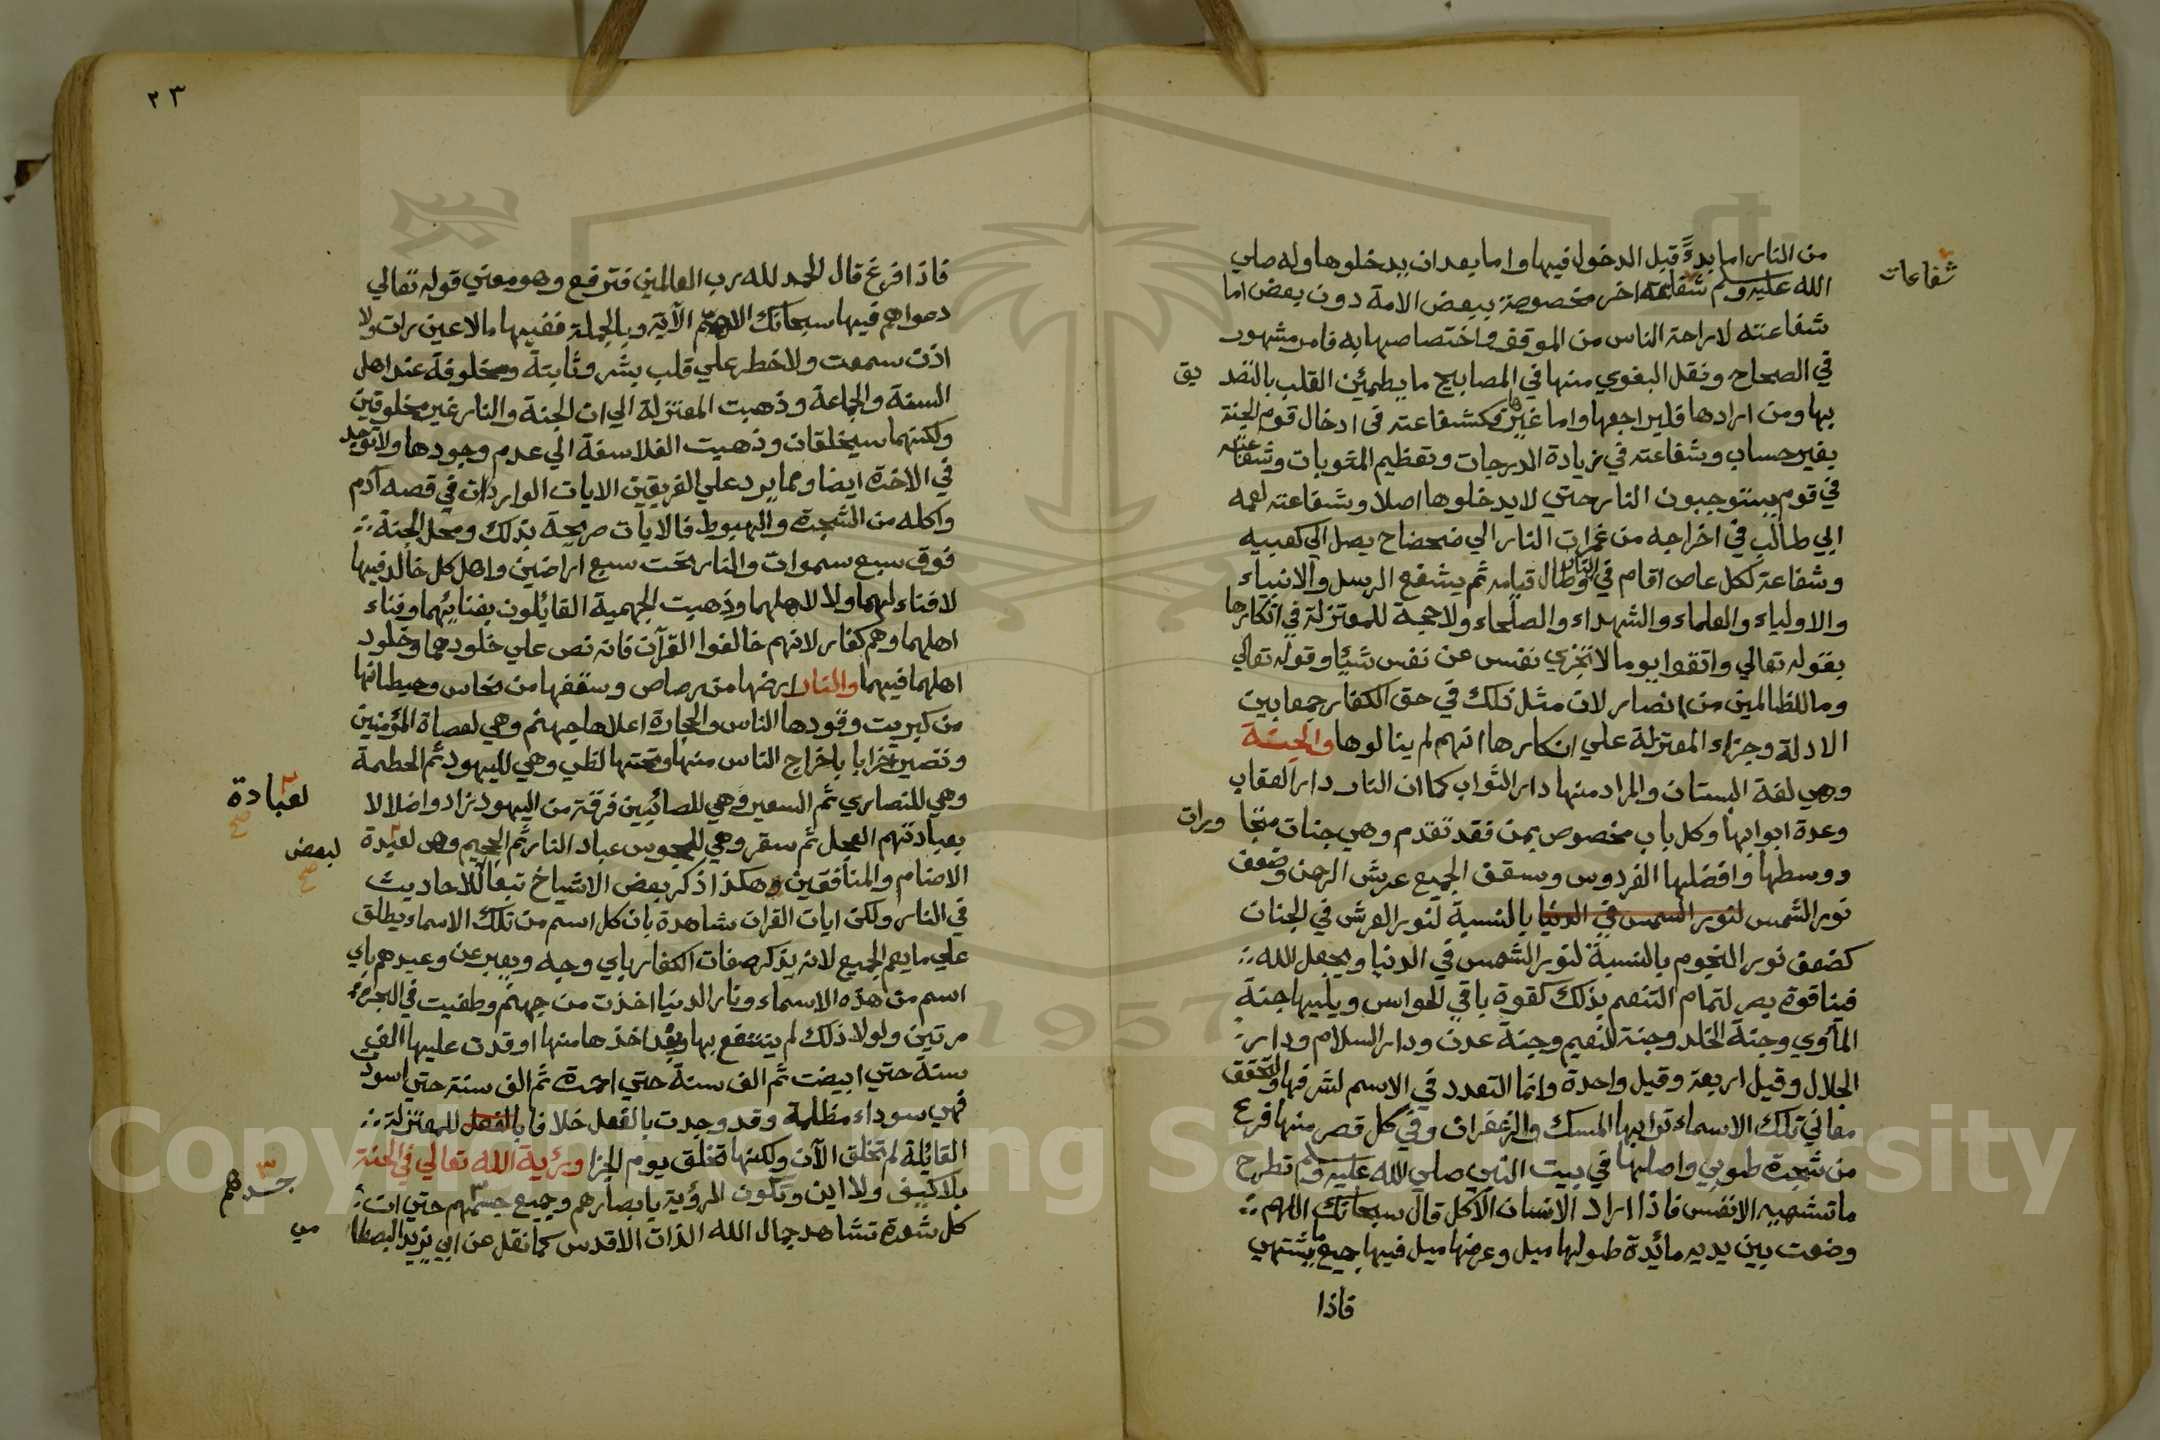 من النار اما بدءً قبل الدخول فيها واما بعد ان يدخلوها وله صلي
شفاعات
الله عليه وسلم شفاعة اخر مخصوصة ببعض الامة دون بعض اما
شفاعته لاراحة الناس من الموقف واختصاصها به فامر مشهور
في الصحاح ونقل البغوي منها في المصابيح ما يطمئن القلب بالتصد
يق
بها ومن ارادها فليراجعها واما غيرها فكشفاعته في ادخال قوم الجنة
بغير حساب وشفاعته في زيادة الدرجات وتعظيم المثوبات وشفاعته
في قوم يستوجبون النار حتي لا يدخلوها اصلا وشفاعته لعمه
ابي طالب في اخراجه من غمرات النار الي ضحضاح يصل الي كعبيه
وشفاعة لكل عاص اقام في النار وطال قيامه ثم يشفع الرسل والانبياء
والاولياء والعلماء والشهداء والصلحاء ولا حجة للمعتزلة في انكارها
بقوله تعالي واتقوا يوما لا تجزي نفس عن نفس شيئا وقوله تعالي
وما للظالمين من انصار لان مثل ذلك في حق الكفار جمعا بين
الادلة وجزاء المعتزلة علي انكارها انهم لم ينالوها والجنة
وهي لغة البستان والمراد منها دار الثواب كما ان النار دار العقاب
وعدة ابوابها وكل باب مخصوص بمن فقد تقدم وهي جنات متجا
ورات
ووسطها وافضلها الفردوس وسقف الجميع عرش الرحمن وضعف
نور الشمس لنور الشمس في الدنيا بالنسبة لنور العرش في الجنان
كضعف نور النجوم بالنسبة لنور الشمس في الدنيا ويجعل الله
فينا قوة بصر لتمام التنعم بذلك كقوة باقي الحواس ويليها جنة
المأوي وجنة الخلد وجنة النعيم وجنة عدن ودار السلام ودار
الجلال وقيل اربعة وقيل واحدة وانما التعدد في الاسم لشرفها ولتحقق
معاني تلك الاسماء ترابها المسك والزعفران وفي كل قصر منها فرع
من شجرة طوبي واصلها في بيت النبي صلي الله عليه وسلم تطرح
ما تشتهيه الانفس فاذا اراد الانسان الاكل قال سبحانك اللهم
وضعت بين يديه مائدة طولها ميل وعرضها ميل فيها جميع ما يشتهي
فاذا
٢٣
فاذا فرغ قال الحمد لله رب العالمين فترفع وهو معني قوله تعالي
دعواهم فيها سبحانك اللهم الآية وبالجملة ففيها ما لا عين رات ولا
اذن سمعت ولا خطر علي قلب بشر وثابتة ومخلوقة عند اهل
السنة والجماعة وذهبت المعتزلة الي ان الجنة والنار غير مخلوقتين
ولكنهما سيخلقان وذهبت الفلاسفة الي عدم وجودها ولا توجد
في الاخرة ايضا ومما يرد علي الفريقين الايات الواردات في قصه آدم
واكله من الشجرة والهبوط فالايات صريحة بذلك ومحل الجنة
فوق سبع سموات والنار تحت سبع اراضين واهل كل خالد فيها
لا فناء لهما ولا لاهلهما وذهبت الجهمية القائلون بفنائهما وفناء
اهلهما وهم كفار لانهم خالفوا القرآن فانه نص علي خلودهما وخلود
اهلهما فيهما والنار ارضها من رصاص وسقفها من نحاس وحيطانها
من كبريت وقودها الناس والحجارة اعلاها جهنم وهي لعصاة المؤمنين
وتصير خرابا باخراج الناس منها وتحتها لظي وهي لليهود ثم الحطمة
وهي للنصاري ثم السعير وهي للصائبين فرقة من اليهود زادوا ضلالا
لعبادة
صح
بعبادتهم العجل ثم سقر وهي للمجوس عباد النار ثم الجحيم وهي لعبدة
لبعض
صح
الاصنام والمنافقين وهكذا ذكر بعض الاشياخ تبعا للاحاديث
في النار ولكن ايات القران شاهدة بان كل اسم من تلك الاسماء يطلق
علي ما يعم الجميع لانه يذكر صفات الكفار باي وجه ويعبر عن وعيدهم باي
اسم من هذه الاسماء ونار الدنيا اخذت من جهنم وطفيت في البحر
مرتين ولولا ذلك لم ينتفع بها وبعد اخذها منها اوقدت عليها الف
سنة حتي ابيضت ثم الف سنة حتي احمرت ثم الف سنة حتي اسود
فهي سوداء مظلمة وقد وجدت بالفعل خلافا بالفعل للمعتزلة
القائلة لم تخلق الآن ولكنها تخلق يوم الجزا ورؤية الله تعالي في الجنة
بلا كيف ولا اين وتكون الرؤية بابصارهم وجميع جسمهم حتي ان
جسدهم
كل شعرة تشاهد جمال الله الذات الاقدس كما نقل عن ابي يزيد البسطا
مي